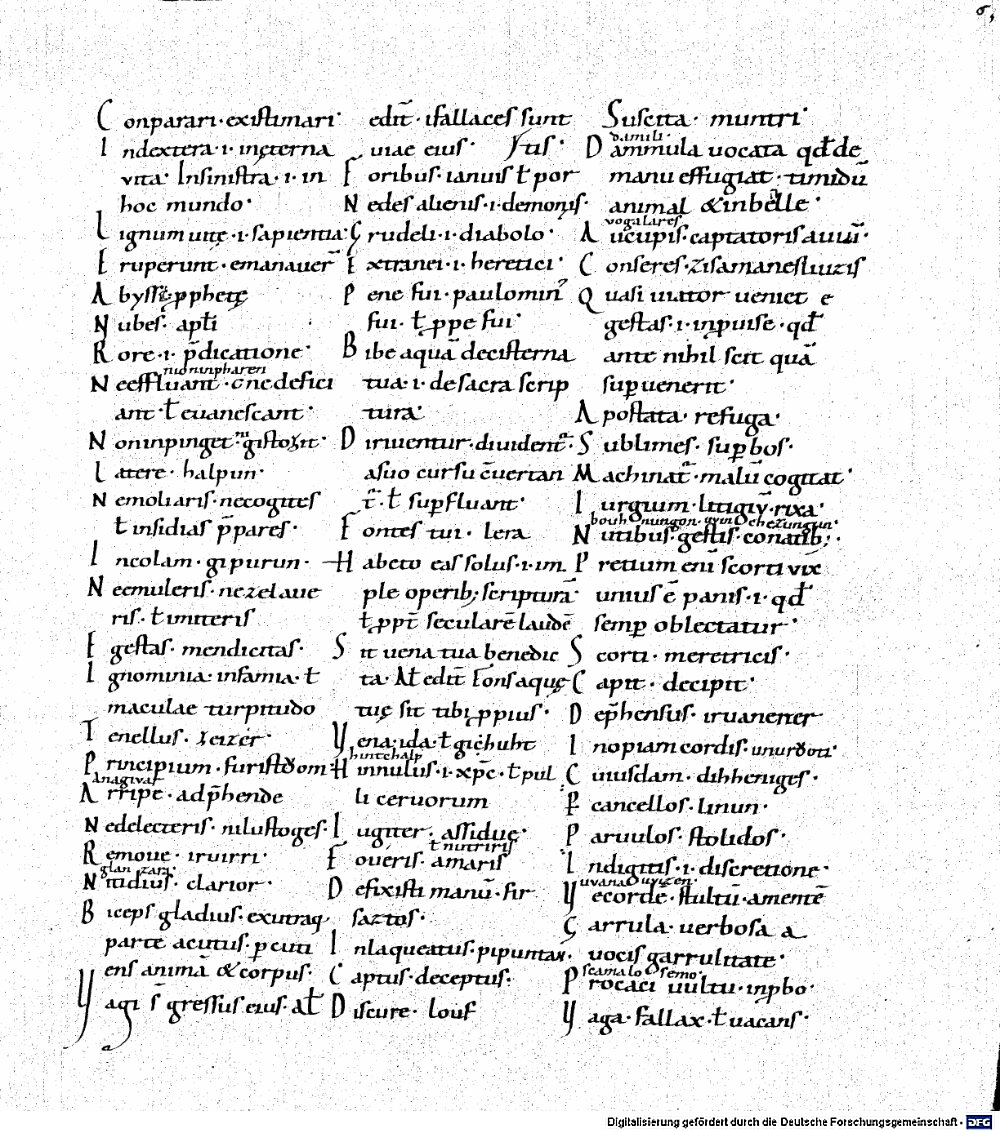 6,
Conparari · existimari ·
Indextera · i · ineterna
vita · Insinistra · i · in
hoc mundo ·
Lignum uite · i · sapientia :
Eruperunt · emanauer̄
Abyssi · pphete
Nubes · apłi
Rore · i · p̄dicatione ·
ni uirpharen
Neeffluant · ne defici
ant · ł euanescant ·
Noninpinget · ni gistozit ·
Latere · halpun ·
Nemoliaris · necogites
ł insidias p̄pares ·
Incolam · gipurun ·
Neemuleris · nezelaue
ris · ł imiteris
Egestas · mendicitas ·
Ignominia · infamia · ł
maculae turpitudo
Tenellus · zeizer ·
Principium · furistđom
anagivas
Arripe · adp̄hende
Nedelecteris · nilustoges ·
Remoue · iruirri ·
glanzara
Nitidius · clarior ·
Biceps gladius · exutraq;
parte acutus · pcuti
ens animā & corpus ·
Uagi s̄ gressus eius · ał
edit̄ · ifallaces sunt
uiae eius · 
Foribus · ianuis ł por tis ·
Nedes alienis · i · demonis ·
Crudeli · i · diabolo ·
Extranei · i · heretici ·
Pene fui · paulomin᷒
fui · ł ppe fui ·
Bibe aquā decisterna
tua · i · desacra scrip
tura ·
Diriuentur · diuident̄ ·
asuo cursu c̄uertan
t̄ · ł supfluant ·
Fontes tui · lera
Habeto eas solus · i · im
ple operib; scripturā
ł ppt̄ secularē laudē
Sit uena tua benedic
ta · Ał edit̄ fons aque
tue sit tibi ppius ·
Uena · ida · ł gichuht
hintchalp
Hinnulus · i · xp̄c · ł pul
li ceruorum
Iugiter · assidue ·
ł nutriris
Foueris · amaris
Defixisti manū · fir
saztos ·
Inlaqueatus · pipuntan ·
Captus · deceptus ·
Discure · louf
Suscita · muntri ·
damili ·
Dammula uocata qđ de
manu effugiat · timidū
animal & inbelle ·
vogalares
Aucupis · captatoris auiū ·
Conseres · zisamanesliuzis
Quasi uiator ueniet e
gestas · i · inpuise · qđ
ante nihil scit quā
supuenerit ·
Apostata · refuga ·
Sublimes · supbos ·
Machinat̄ · malū cogitat ·
Iurgium · litigiū · rixa ·
bouhnungon · gvin chezungun ·
Nutibus · gestis · conatib; ·
Pretium enī scorti vix
unius ē panis · i · qđ
semp oblectatur ·
Scorti · meretricis ·
Capit · decipit ·
Dep̄hensus · iruanener
Inopiam cordis · unurđoti ·
Cuiusdam · dihheniges ·
P cancellos · linun ·
Paruulos · stolidos ·
Indigitis · i · discretione ·
uvanauuizen ·
Uecordē · stultū · amentē
Garrula · uerbosa a
uocis garrulitate ·
scamalosemo ·
Procaci uultu · inpbo ·
Uaga · fallax · ł uacans ·
Digitalisierung gefördert durch die Deutsche Forschungsgemeinschaft - DFG